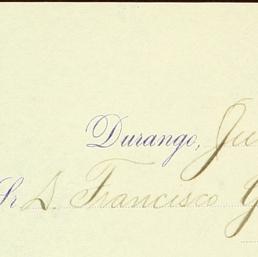 Durango, Ju
Sr D. Francisco G